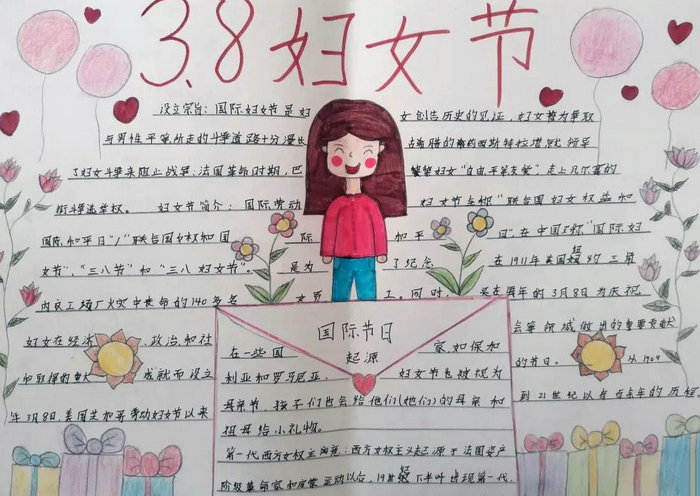 3.8妇女节
设立宗旨：国际妇女节是妇女创造历史的见证，妇女替为争取
与男性平等所走的斗争道路十分漫长 古希腊的 西斯特拉塔就领导
了妇女斗争来阻止战争；法国革命时期，巴黎妇女"自由、平等友爱"，走上凡尔赛的
街斗争选举权。 妇女节简介： 国际劳动妇女节全称"联合国妇女权益和
国际和平日"/"联合国女权和国际和平日"在中国又称"国际妇
女节"、"三八节"和"三八妇女节"。是为了纪念在1911年美国 约三角
内衣工场火灾中丧命的140多名女员工。同时，是在每年的3月8日为庆祝
妇女在经济、政治和社会等领域做出的重要贡献
和取得的重大成就而设立的节日。从1909
年3月8日，美国芝加哥劳动妇女节以来到21世纪以有百余年的历程
国际节日
起源
在一些国家，如保加
利亚和罗马尼亚，妇女节也被视为
母亲节，孩子们也会给他们(她们)的母亲和
祖母给小礼物。
第一代西方女权主 ：西方女权主义起源于法国资产
阶级革命 和 运动以后，19世纪下半叶出现第一代